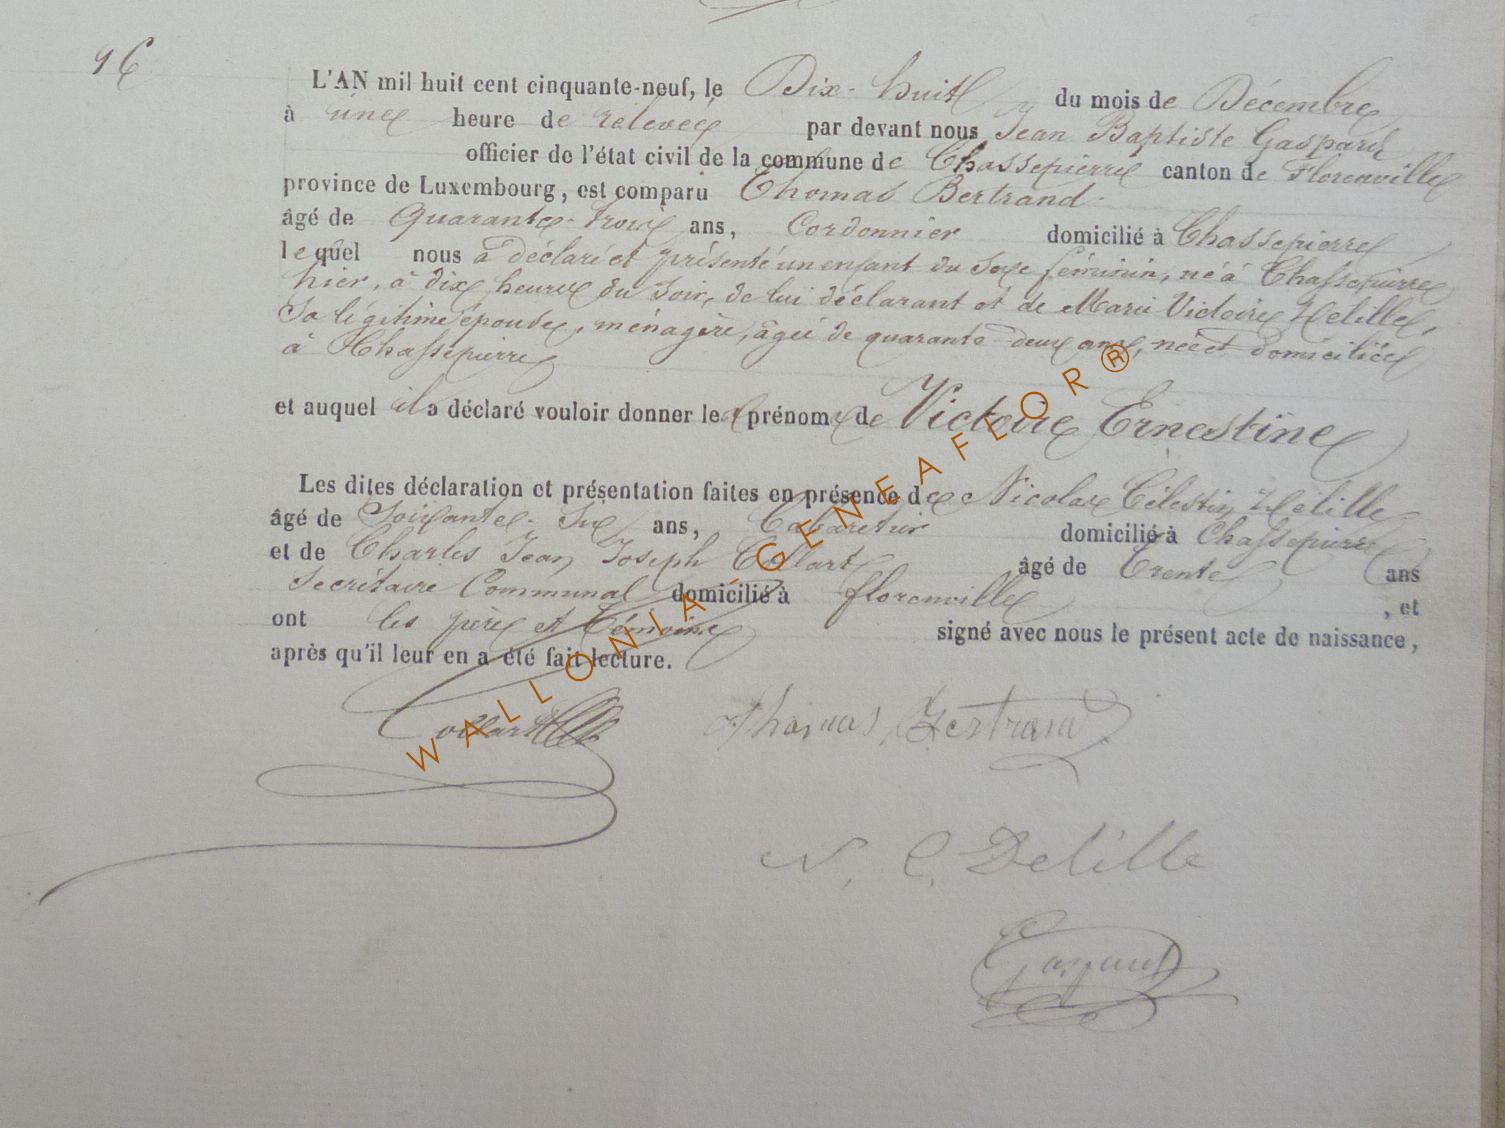 96
L'AN mil huit cent cinquante-neuf, le Dix-huit du mois de Décembre
à une heure de relevée par devant nous Jean Baptiste Gaspard
officier de l'état civil de la commune de Chassepierre canton de Florenville
province de Luxembourg, est comparu Thomas Bertrand
âgé de Quarante-trois ans, Cordonnier domicilié à Chassepierre
lequel nous a déclaré et présenté un enfant du Sexe féminin, né à Chassepierre
hier, à dix heures du Soir, de lui déclarant et de Marie Victoire Delille,
Sa légitime épouse, ménagère, âgée de quarante-deux ans, née et domiciliée
à Chassepierre
et auquel il a déclaré vouloir donner les prénoms de Victoire Ernestine
Les dites déclaration et présentation faites en présence de Nicolas Célestin Delille
âgé de Soixante-Six ans, Cabaretier domicilié à Chassepierre
et de Charles Jean Joseph Collart âgé de Trente ans
Secrétaire Communal domicilié à florenville , et
ont les père et témoins signé avec nous le présent acte de naissance,
après qu'il leur en a été fait lecture.
Collart Thomas Bertrand
N. C. Delille
Gaspard
WALLONIA-GENEAFLOR®